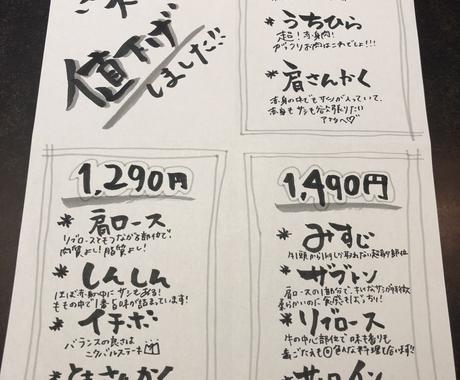 値下げ
しました!!
*うちひら
超!赤身肉!
ガッツリお肉はこれでしょ!!!
*肩さんかく
赤身の中でもサシが入っていて、
赤身もサシも欲張りたい
アナタへ♡
1,290円
*肩ロース
リブロースともつながる部位で、
肉質よし!脂質よし!
*しんしん
ほぼ赤身中にサシもある!
ももの中で1番旨味が詰まっています!
*イチボ
バランスの良さは
ニクバルステーキ
*ともさんかく
1,490円
*みすじ
*ザブトン
肩ロースの1部分で、きれいなサシが特徴
柔らかいのに食感もばっちり!
*リブロース
牛の中心部位で味も香りも
*サーロイン